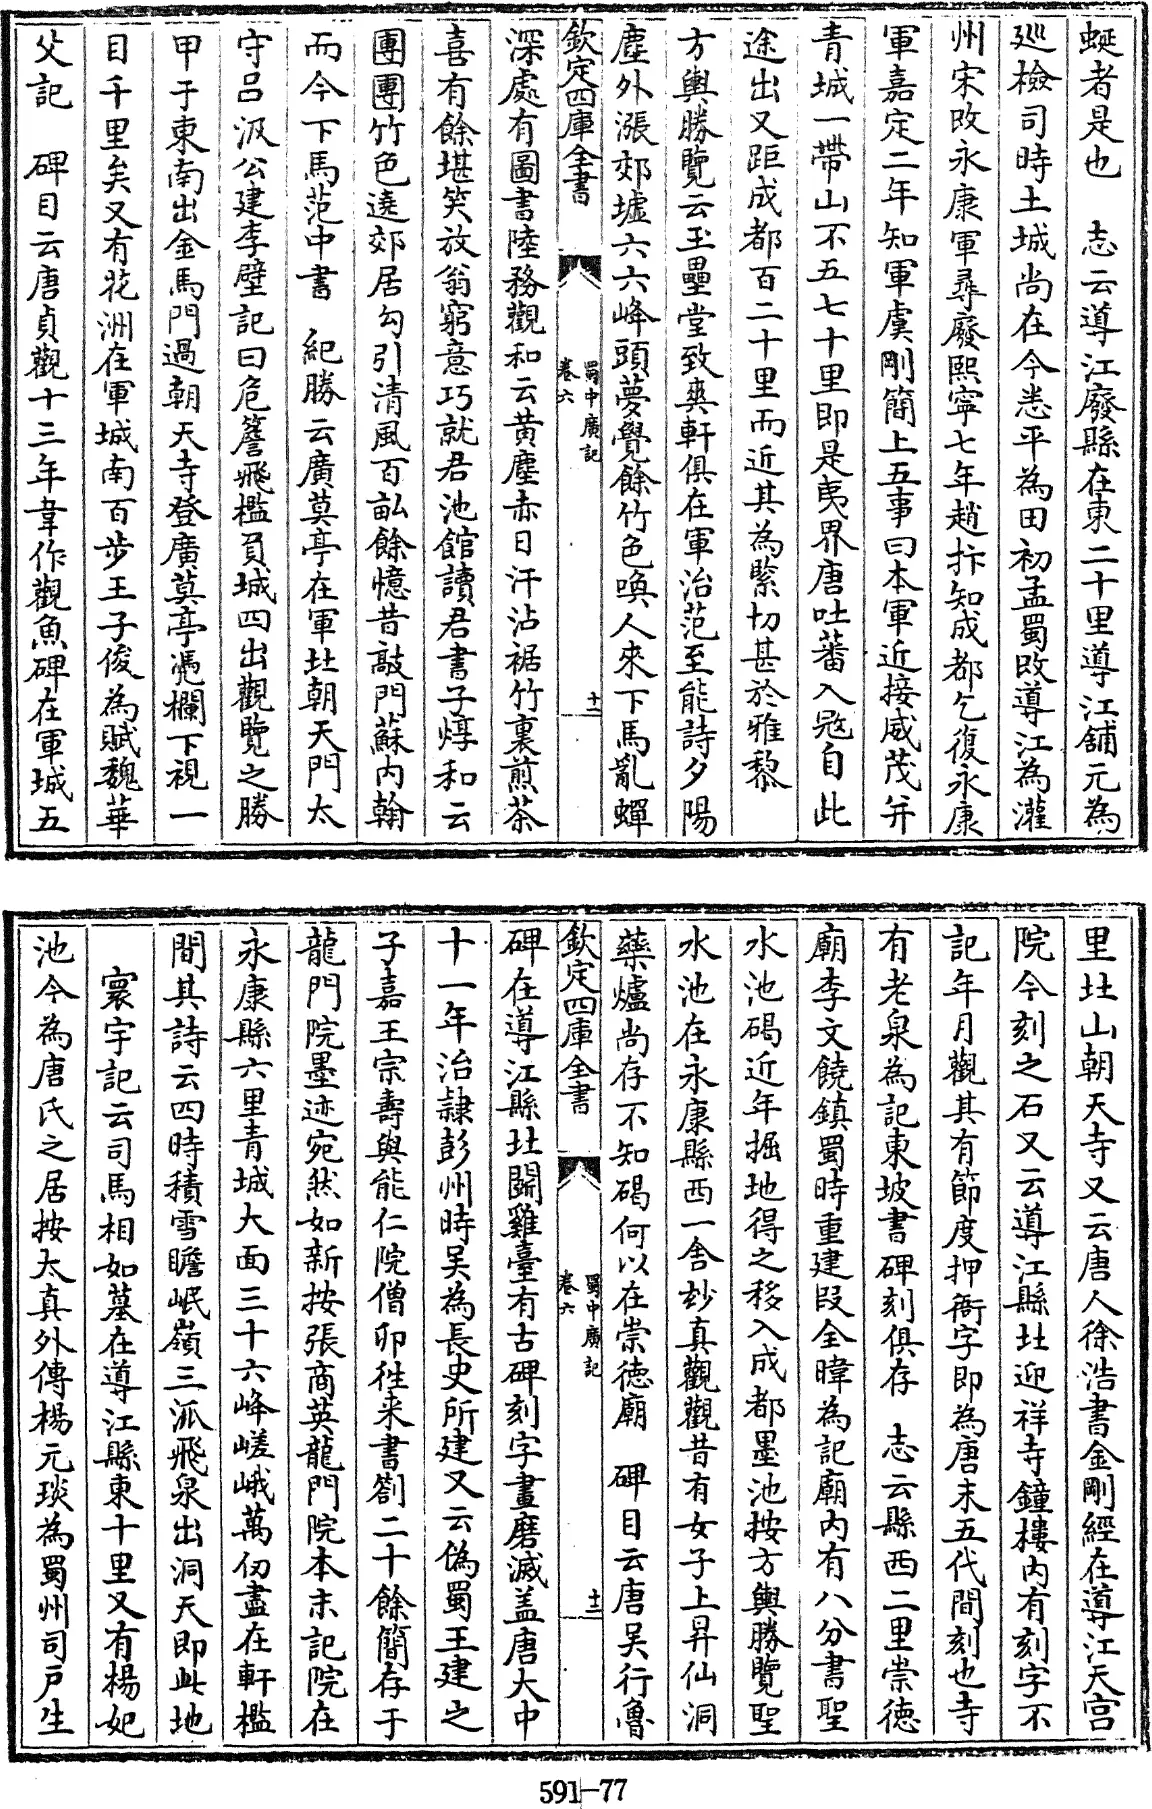 蜒者是也　志云導江廢縣在東二十里導江舖元為
廵檢司時土城尚在今悉平為田初孟蜀改導江為灌
州宋改永康軍尋廢熙寧七年趙抃知成都乞復永康
軍嘉定二年知軍虞剛簡上五事曰本軍近接威茂并
青城一帶山不五七十里即是夷界唐吐蕃入寇自此
途出又距成都百二十里而近其為緊切甚於雅黎
方輿勝覽云玉壘堂致爽軒俱在軍治范至能詩夕陽
塵外漲郊墟六六峰頭夢覺餘竹色喚人來下馬亂蟬
欽定四庫全書　蜀中廣記卷六　十一
深處有圖書陸務觀和云黄塵赤日汗沾裾竹裏煎茶
喜有餘堪笑放翁窮意巧就君池館讀君書子焞和云
團團竹色遶郊居勾引清風百畝餘憶昔敲門蘇内翰
而今下馬范中書　紀勝云廣莫亭在軍北朝天門太
守吕汲公建李壁記曰危簷飛檻負城四出觀覽之勝
甲于東南出金馬門過朝天寺登廣莫亭凴欄下視一
目千里矣又有花洲在軍城南百步王子俊為賦魏華
父記　碑目云唐貞觀十三年韋作觀魚碑在軍城五
里北山朝天寺又云唐人徐浩書金剛經在導江天宫
院今刻之石又云導江縣北迎祥寺鐘樓内有刻字不
記年月觀其有節度押衙字即為唐末五代間刻也寺
有老泉為記東坡書碑刻俱存　志云縣西二里崇德
廟李文饒鎮蜀時重建段全暐為記廟内有八分書聖
水池碣近年掘地得之移入成都墨池按方輿勝覽聖
水池在永康縣西一舍玅真觀觀昔有女子上昇仙洞
藥爐尚存不知碣何以在崇德廟　碑目云唐吴行魯
欽定四庫全書　蜀中廣記卷六　十二
碑在導江縣北鬭雞臺有古碑刻字畫磨滅盖唐大中
十一年治隷彭州時吴為長史所建又云偽蜀王建之
子嘉王宗壽與能仁院僧卯徃来書劄二十餘簡存于
龍門院墨迹宛然如新按張商英龍門院本末記院在
永康縣六里青城大面三十六峰嵯峨萬仞盡在軒檻
間其詩云四時積雪瞻岷嶺三派飛泉出洞天即此地
　寰宇記云司馬相如墓在導江縣東十里又有楊妃
池今為唐氏之居按太真外傳楊元琰為蜀州司戸生
591-77